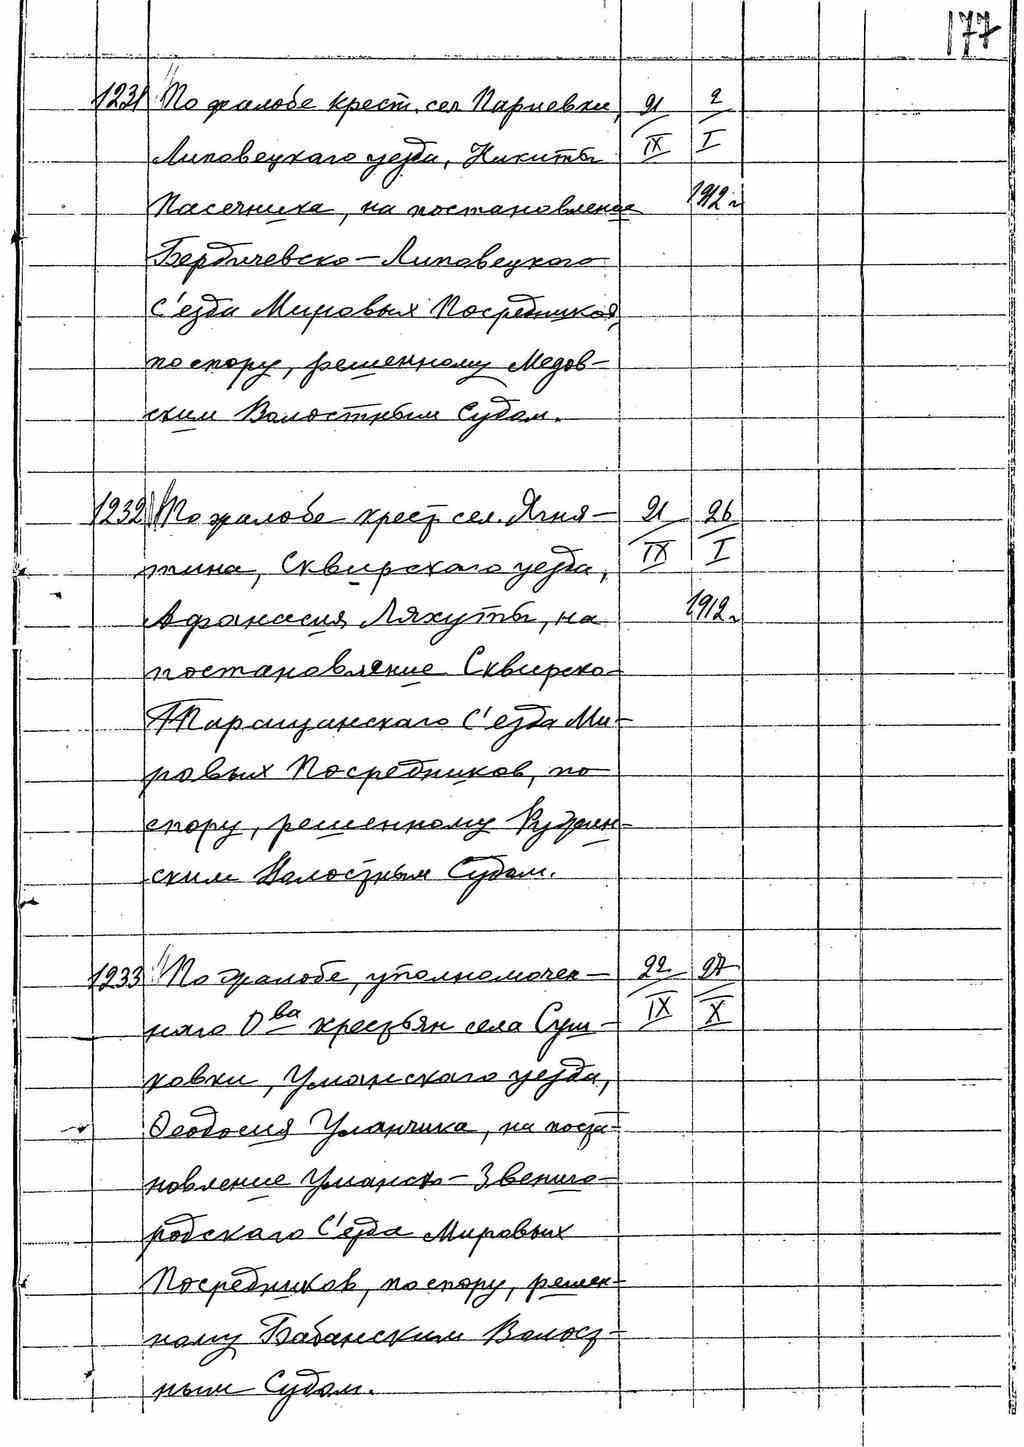 177
1231 По жалобе крест. сел Париевки, 21/IX 2/I
Липовецкаго уезда, Никиты
Пасечника, на постановление 1912 г.
Бердичевско-Липовецкого
С'езда Мировых Посредников,
по спору, решенному Медов-
ским Волостным Судом.
1232 По жалобе крест. сел. Ягня- 21/IX 26/I
тина, Сквирскаго уезда,
Афанасия Ляхуты, на 1912 г.
постановление Сквирско-
Таращанскаго С'езда Ми-
ровых Посредников, по
спору, решенному Ружин-
ским Волостным Судом.
1233 По жалобе, уполномочен- 22/IX 27/X
наго О-ва крестьян села Суш-
ковки, Уманскаго уезда,
Феодосия Уланчика, на поста-
новление Уманско-Звениго-
родскаго С'езда Мировых
Посредников, по спору, решен-
ному Бабанским Волост-
ным Судом.